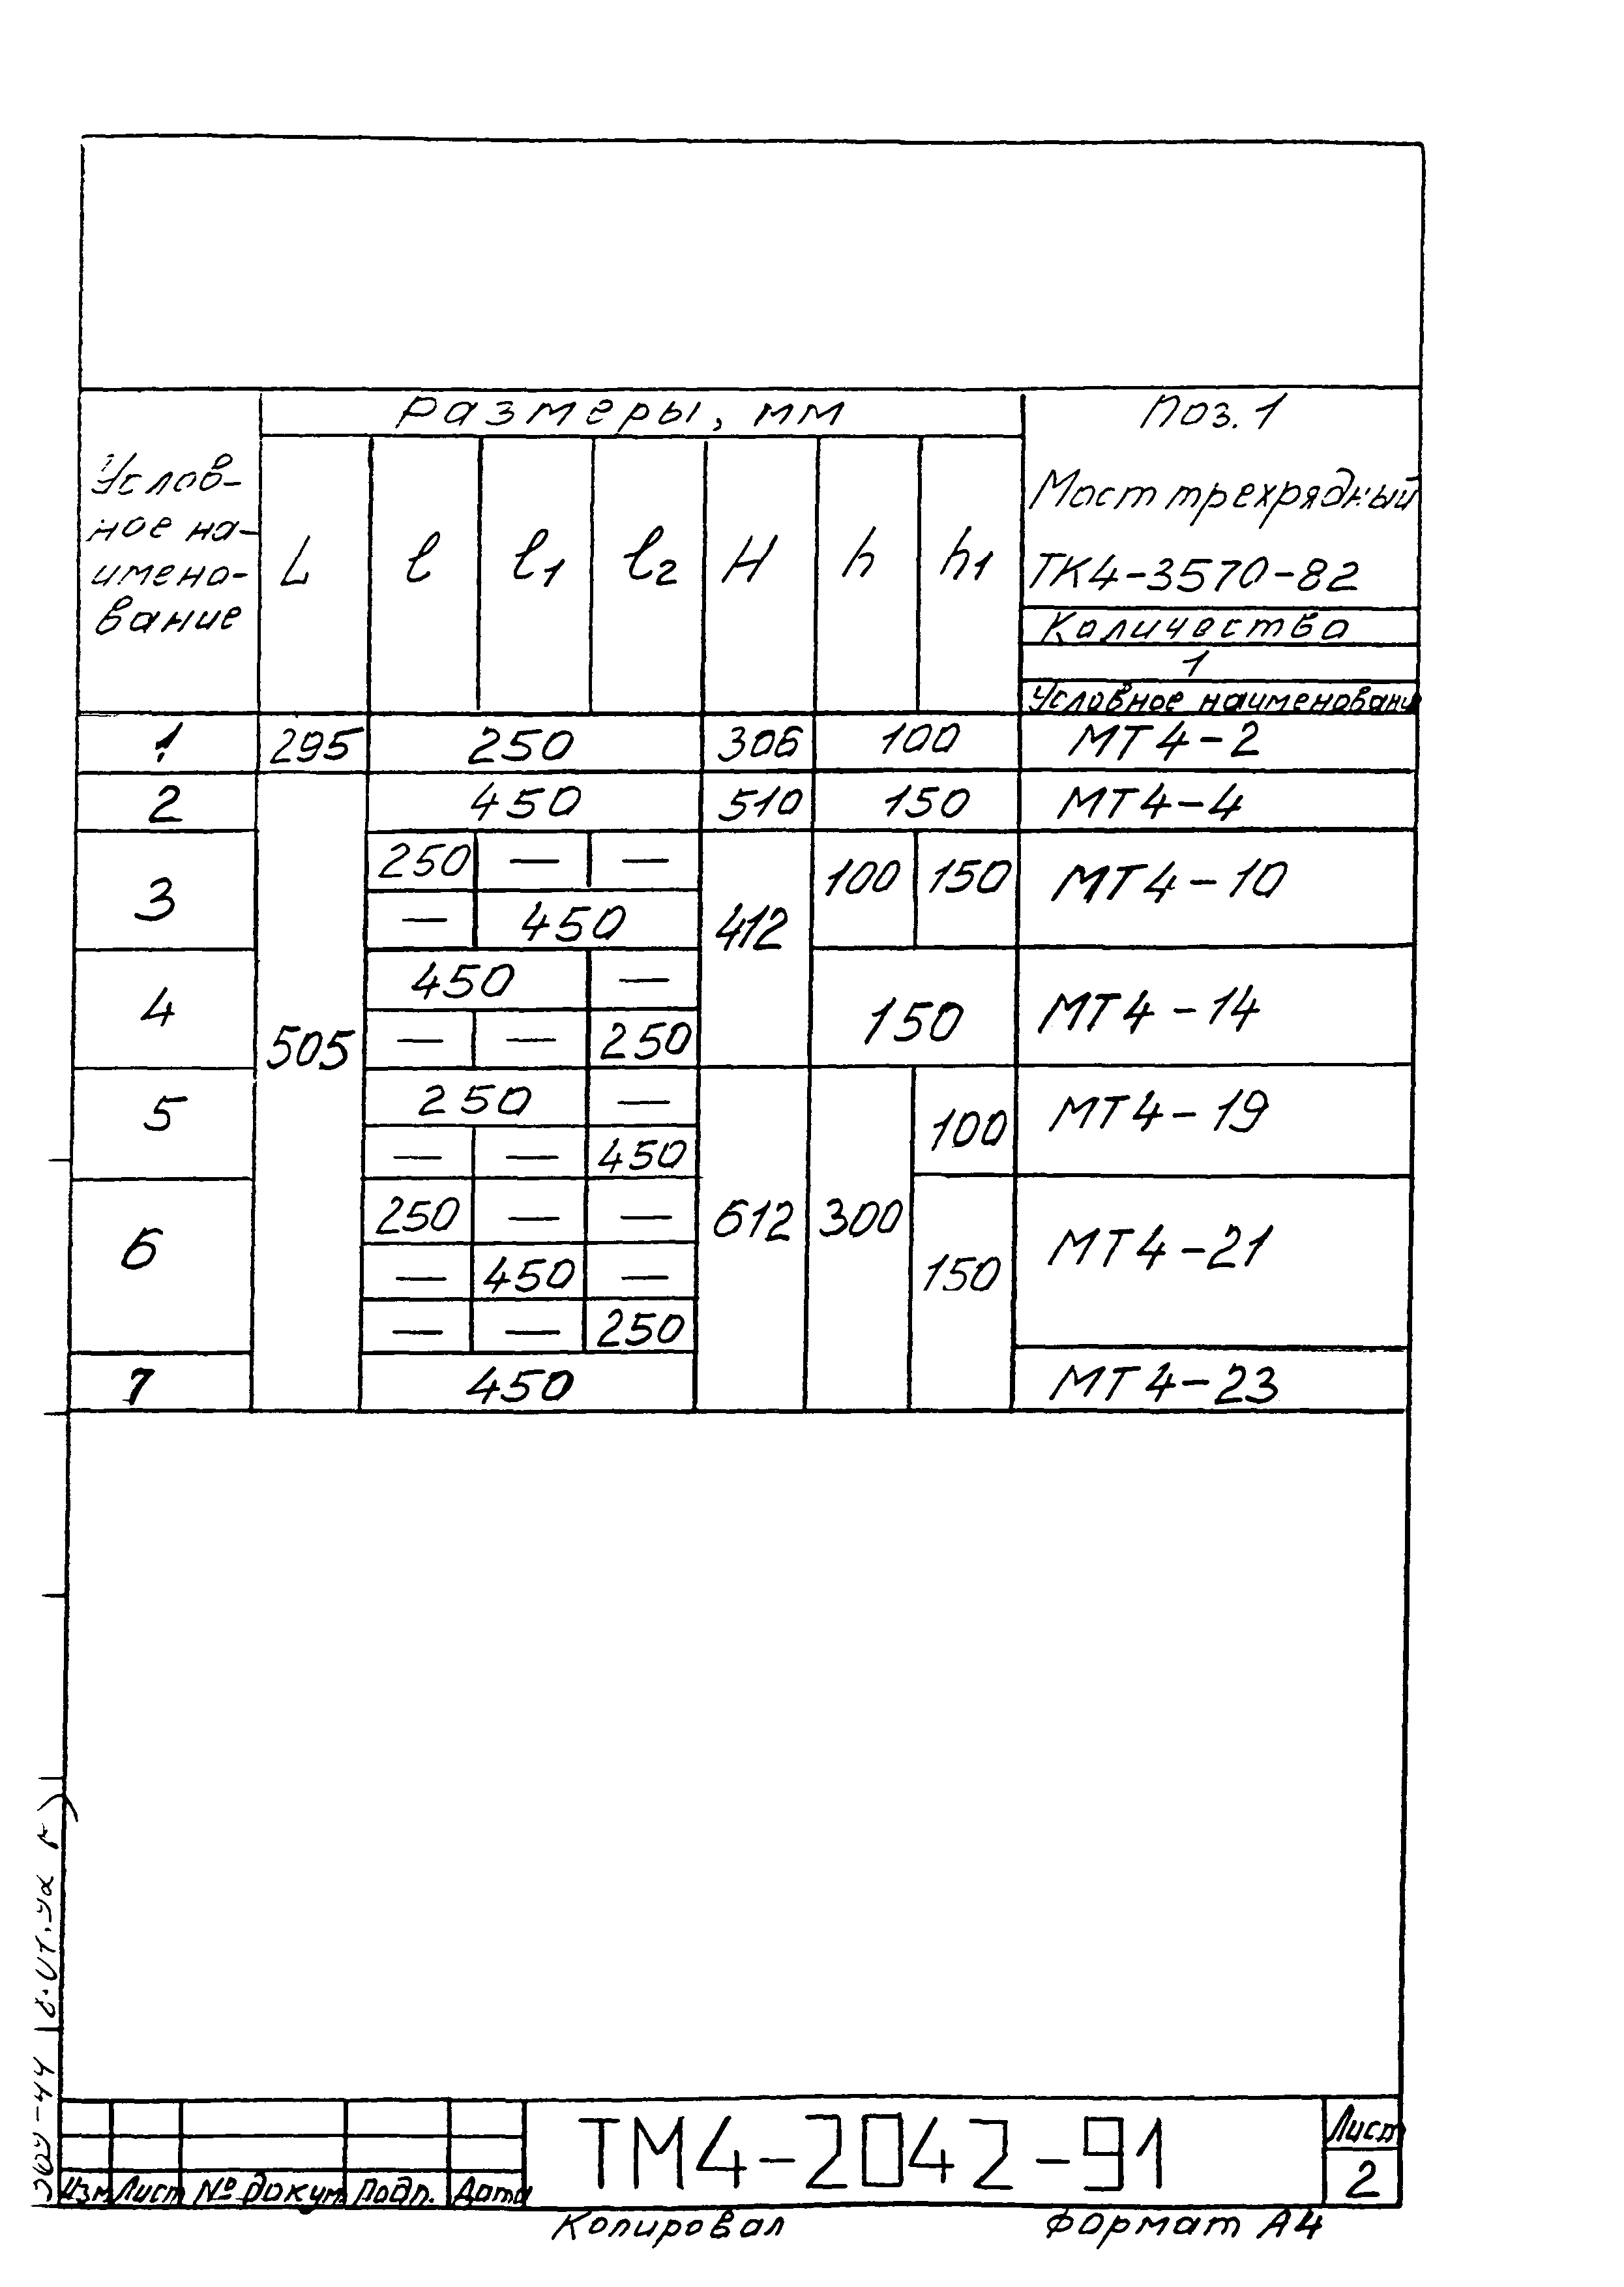 Размеры, мм
Поз.1
Услов-
ное на-
имено-
вание
L
l
l1
l2
H
h
h1
Мост трехрядный
ТК4-3570-82
Количество
1
Условное наименовани
1 295 250 306 100 МТ4-2
2 450 510 150 МТ4-4
3 250 — — 100 150 МТ4-10
— 450 412
4 450 — 150 МТ4-14
505 — — 250
5 250 — 100 МТ4-19
— — 450
6 250 — — 612 300 МТ4-21
— 450 — 150
— — 250
7 450 МТ4-23
ТМ4-2042-91
Лист
2
Изм Лист № докум Подп. Дата
Копировал Формат А4